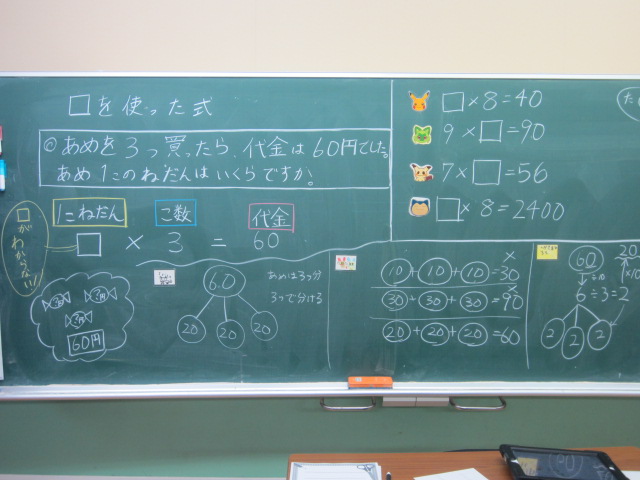 □を使った式
◎あめを3つ買ったら、代金は60円でした。
あめ1このねだんはいくらですか。
1こねだん
こ数
代金
□ × 3 = 60
□が
わからない!
?円
?円
?円
60円
60
20 20 20
あめは3つ分
3つで分ける
×
10+10+10=30
×
30+30+30=90
20+20+20=60
□×8=40
9×□=90
7×□=56
□×8=2400
60
÷10
6÷3=2
2 2 2
20